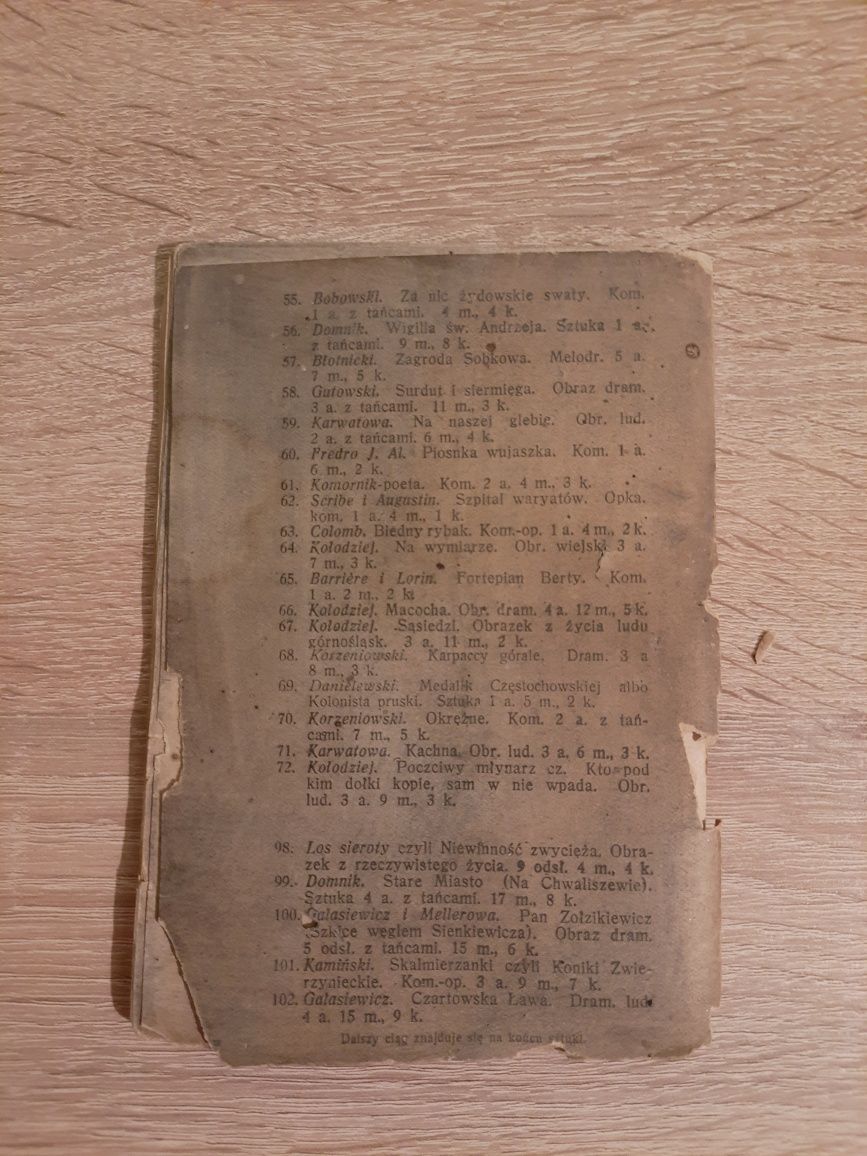 55. Bobowski. Za nic żydowskie swaty. Kom.
1 a. z tańcami. 4 m., 4 k.
56. Domnik. Wigilia św. Andrzeja. Sztuka 1 a.
z tańcami. 9 m., 8 k.
57. Błotnicki. Zagroda Sobkowa. Melodr. 5 a.
7 m., 5 k.
58. Gutowski. Surdut i siermięga. Obraz dram.
3 a. z tańcami. 11 m., 3 k.
59. Karwatowa. Na naszej glebie. Obr. lud.
2 a. z tańcami. 6 m., 4 k.
60. Fredro J. Al. Piosnka wujaszka. Kom. 1 a.
6 m., 2 k.
61. Komornik-poeta. Kom. 2 a. 4 m., 3 k.
62. Scribe i Augustin. Szpital waryatów. Opka.
kom. 1 a. 4 m., 1 k.
63. Colomb. Biedny rybak. Kom.-op. 1 a. 4 m., 2 k.
64. Kołodziej. Na wymiarze. Obr. wiejski 3 a.
7 m., 3 k.
65. Barrière i Lorin. Fortepian Berty. Kom.
1 a. 2 m., 2 k.
66. Kołodziej. Macocha. Obr. dram. 4 a. 12 m., 5 k.
67. Kołodziej. Sąsiedzi. Obrazek z życia ludu
górnośląsk. 3 a. 11 m., 2 k.
68. Korzeniowski. Karpaccy górale. Dram. 3 a
8 m., 3 k.
69. Danielewski. Medalik Częstochowskiej albo
Kolonista pruski. Sztuka 1 a. 5 m., 2 k.
70. Korzeniowski. Okrężne. Kom. 2 a. z tań-
cami. 7 m., 5 k.
71. Karwatowa. Kachna. Obr. lud. 3 a. 6 m., 3 k.
72. Kołodziej. Poczciwy młynarz cz. Kto pod
kim dołki kopie, sam w nie wpada. Obr.
lud. 3 a. 9 m., 3 k.
98. Los sieroty czyli Niewinność zwycięża. Obra-
zek z rzeczywistego życia. 9 odsł. 4 m., 4 k.
99. Domnik. Stare Miasto (Na Chwaliszewie).
Sztuka 4 a. z tańcami. 17 m., 8 k.
100. Galasiewicz i Mellerowa. Pan Zołzikiewicz
(Szkice węglem Sienkiewicza). Obraz dram.
5 odsł. z tańcami. 15 m., 6 k.
101. Kamiński. Skalmierzanki czyli Koniki Zwie-
rzynieckie. Kom.-op. 3 a. 9 m., 7 k.
102. Galasiewicz. Czartowska Ława. Dram. lud.
4 a. 15 m., 9 k.
Dalszy ciąg znajduje się na końcu sztuki.